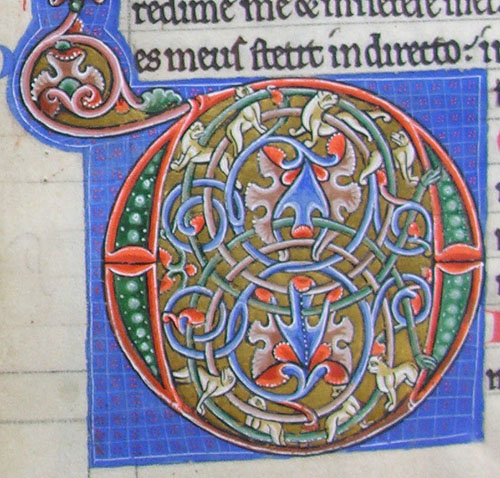 redime me & miſerere mei
es meuſ ſtetit in directo: i
D